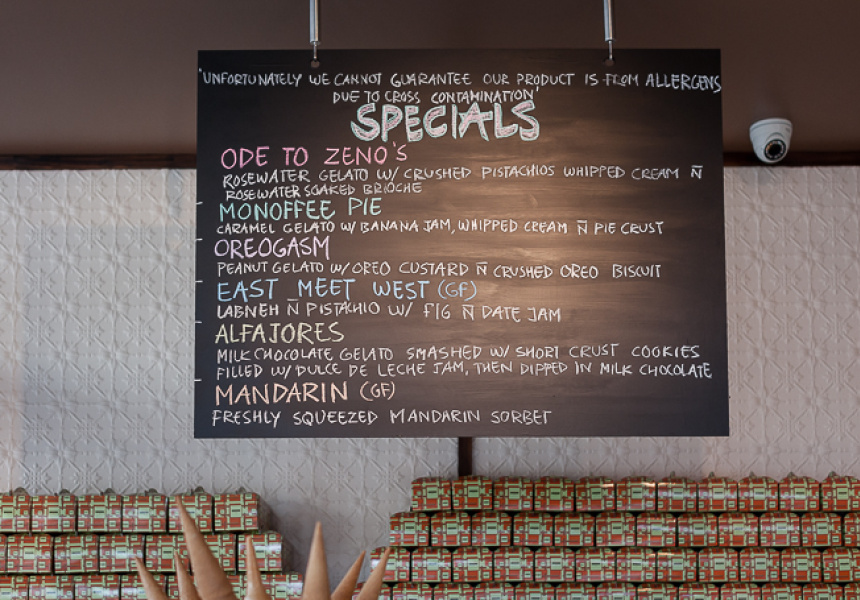 'UNFORTUNATELY WE CANNOT GUARANTEE OUR PRODUCT IS FROM ALLERGENS
DUE TO CROSS CONTAMINATION'
SPECIALS
ODE TO ZENO'S
ROSEWATER GELATO W/ CRUSHED PISTACHIOS WHIPPED CREAM N̄
ROSEWATER SOAKED BRIOCHE
MONOFFEE PIE
CARAMEL GELATO W/ BANANA JAM, WHIPPED CREAM N̄ PIE CRUST
OREOGASM
PEANUT GELATO W/ OREO CUSTARD N̄ CRUSHED OREO BISCUIT
EAST MEET WEST (GF)
LABNEH N̄ PISTACHIO W/ FIG N̄ DATE JAM
ALFAJORES
MILK CHOCOLATE GELATO SMASHED W/ SHORT CRUST COOKIES
FILLED W/ DULCE DE LECHE JAM, THEN DIPPED IN MILK CHOCOLATE
MANDARIN (GF)
FRESHLY SQUEEZED MANDARIN SORBET